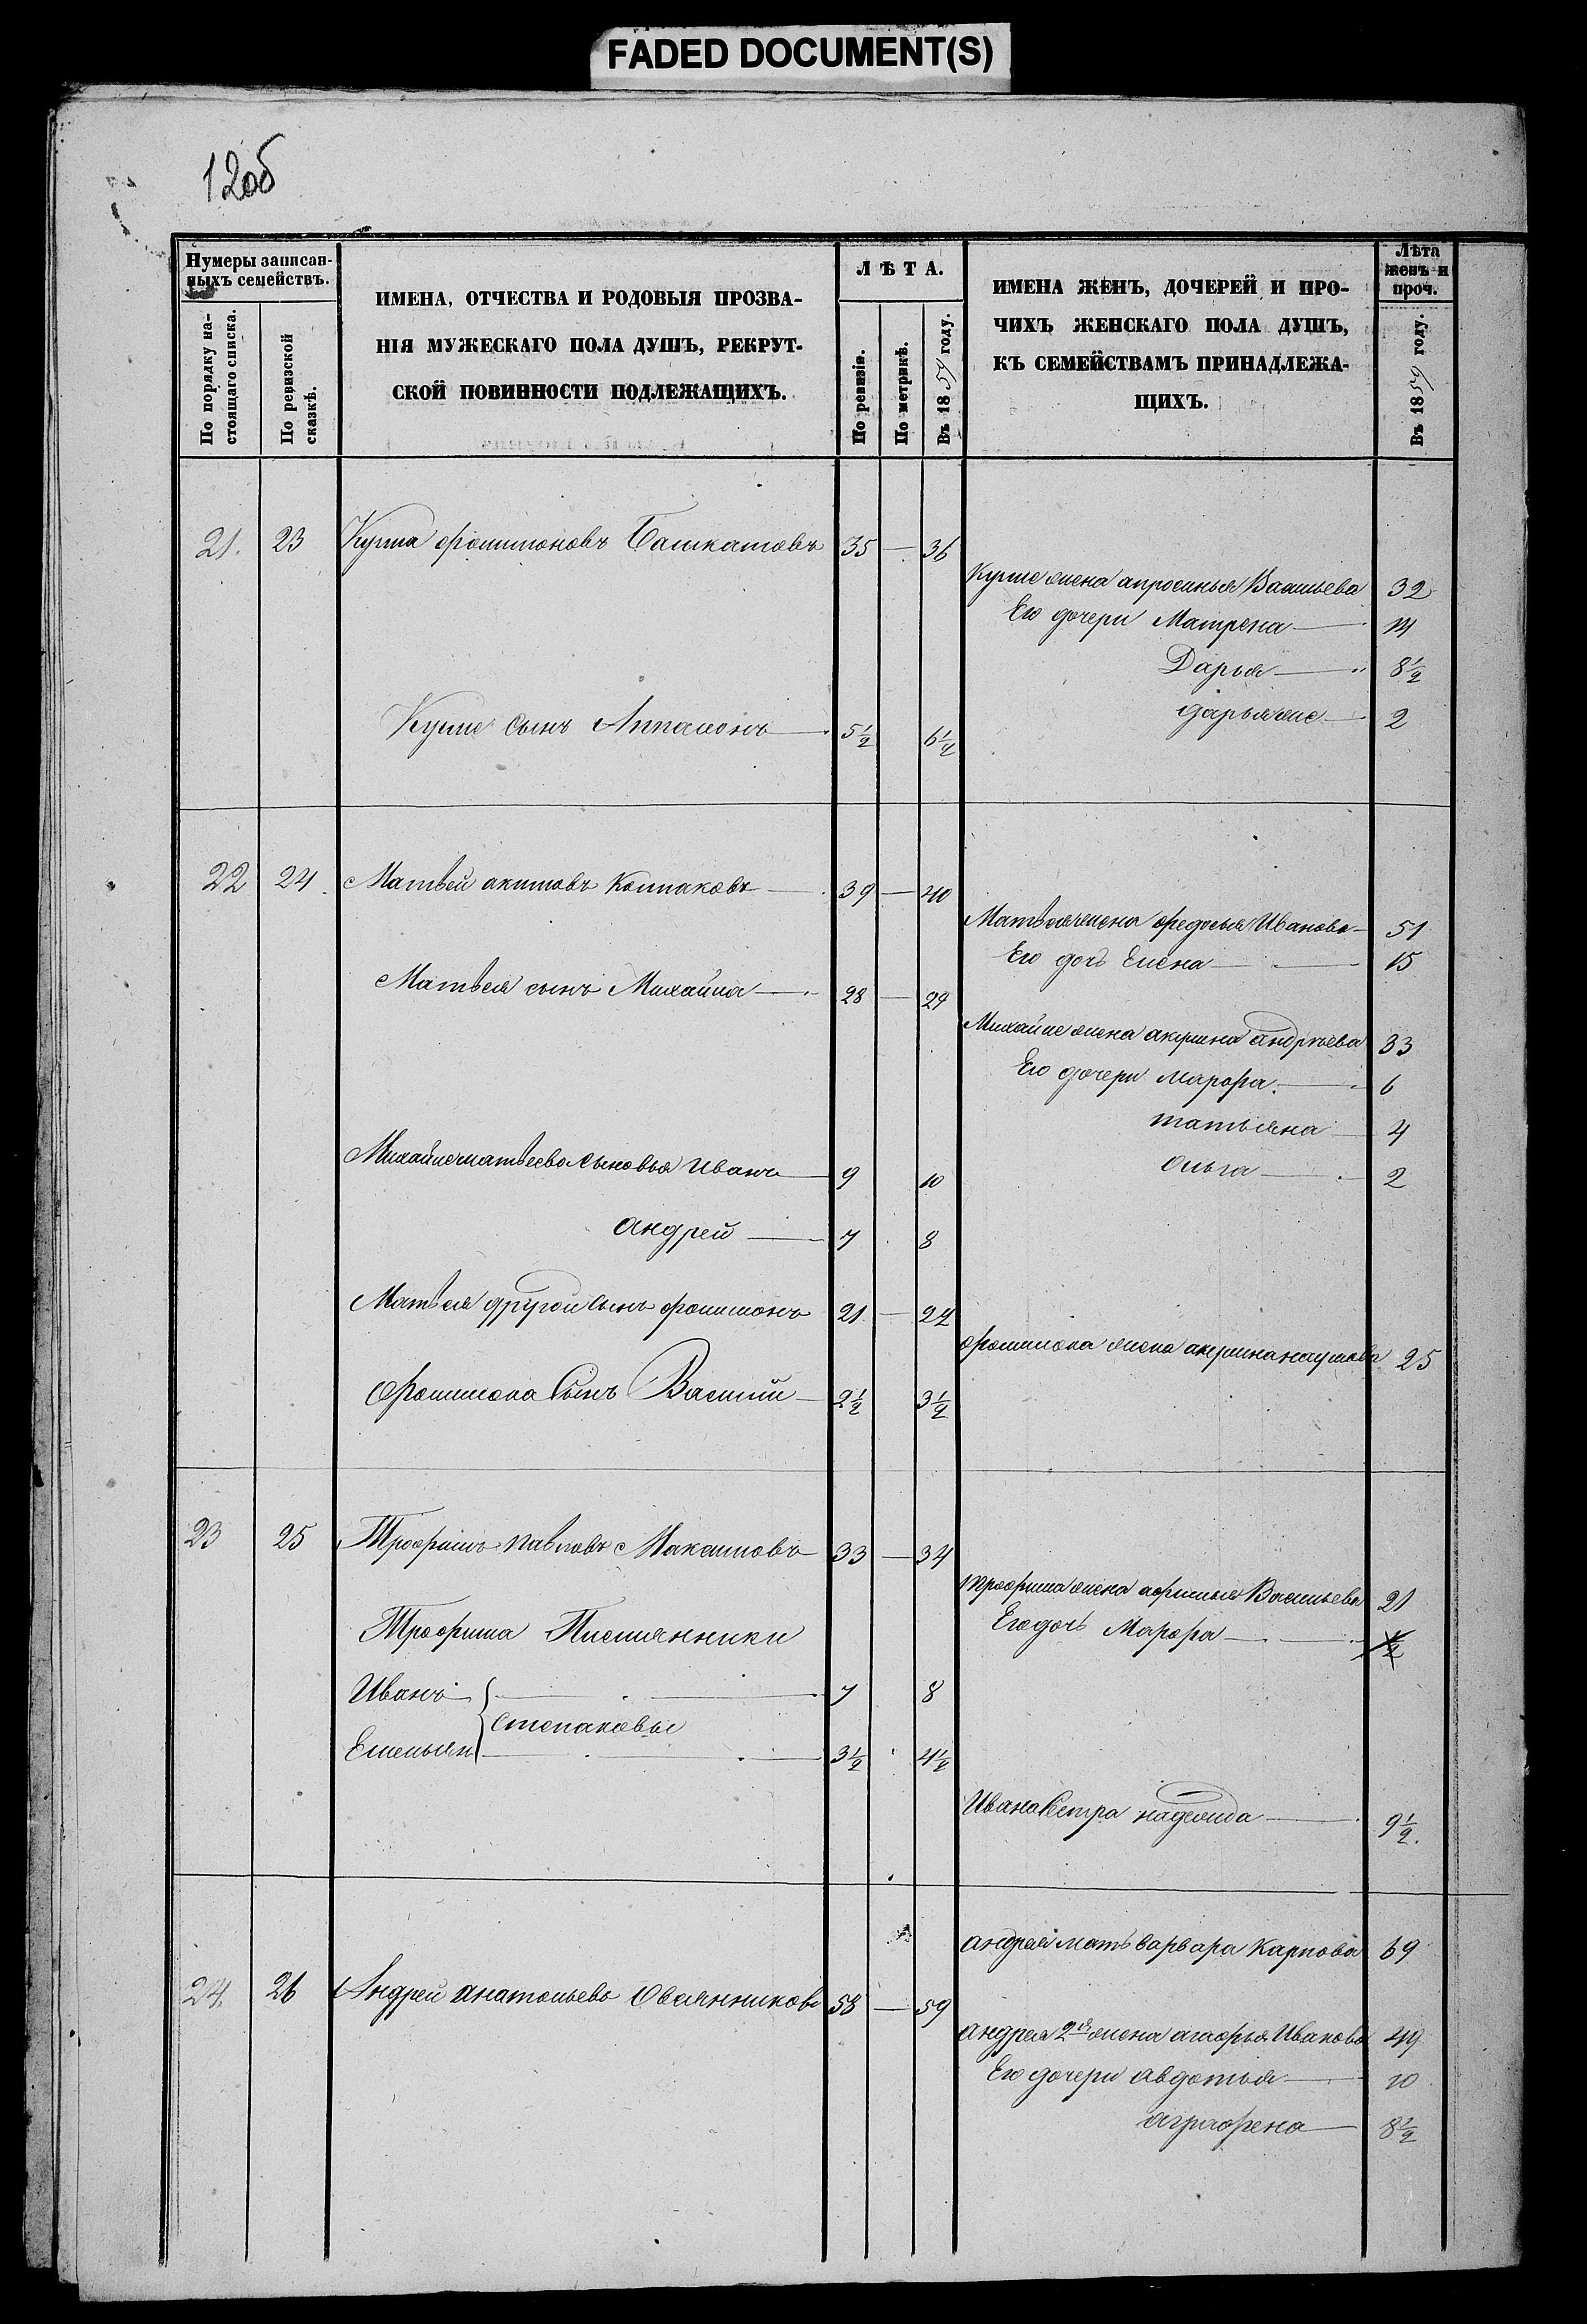 FADED DOCUMENT(S)
12об
Нумеры записан-
ныхъ семействъ.
По порядку на-
стоящаго списка.
По ревизской
сказкѣ.
ИМЕНА, ОТЧЕСТВА И РОДОВЫЯ ПРОЗВА-
НІЯ МУЖЕСКАГО ПОЛА ДУШЪ, РЕКРУТ-
СКОЙ ПОВИННОСТИ ПОДЛЕЖАЩИХЪ.
ЛѢТА.
По ревизіи.
По метрикѣ.
Въ 1859 году.
ИМЕНА ЖЕНЪ, ДОЧЕРЕЙ И ПРО-
ЧИХЪ ЖЕНСКАГО ПОЛА ДУШЪ,
КЪ СЕМЕЙСТВАМЪ ПРИНАДЛЕЖА-
ЩИХЪ.
Лѣта
женъ и
проч.
Въ 1859 году.
21. 23 Кузма филимоновъ Башкатовъ 35 — 36
Кузме жена апросинья Васильева 32
Его дочери Матрена — 14
Дарья — 8½
дарья же — 2
Кузме сынъ Антипъ — 5½ 6½
22 24 Матвей акимовъ Колпаковъ — 39 — 40
Матвея жена федосья Иванова — 51
Его дочь Елена — 15
Матвея сынъ Михайла — 28 — 29
Михайле жена акулина андреева 33
Его дочери марфа — 6
татьяна — 4
ольга — 2
Михайле матвееве сыновья Иванъ — 9 10
андрей — 7 8
Матвея другой сынъ филимонъ 21 — 22
филимона жена акулина наумова 25
филимона сынъ Василий — 2½ 3½
23 25 Трофимъ павловъ Максимовъ 33 — 34
трофима жена афимья Васильева 21
Его дочь Марфа — ½
Трофима Племянники
Иванъ — 7 8
степановы
Емельянъ — 3½ 4½
Ивана сестра надежда — 9½
андрея мать варвара Карпова 69
24. 26 Андрей анатольевъ Овсянниковъ 58 — 59
андрея 2я жена агафья Иванова 49
Его дочери авдотья — 10
аграфена — 8½